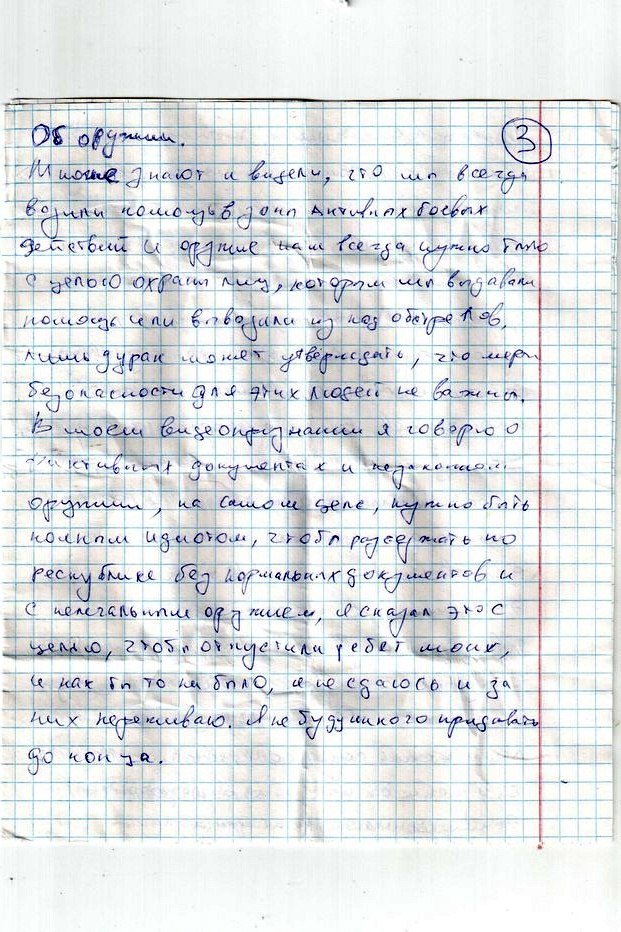 Об оружии.
3
Многие знают и видели, что мы всегда
возили помощь в зоны активных боевых
действий и оружие нам всегда нужно было
с целью охраны лиц, которым мы выдавали
помощь или вывозили из под обстрелов,
лишь дурак может утверждать, что меры
безопасности для этих людей не важны.
В моем видеопризнании я говорю о
фиктивных документах и незаконном
оружии, на самом деле, нужно быть
полным идиотом, чтобы разъезжать по
республике без нормальных документов и
с нелегальным оружием, я сказал это с
целью, чтобы отпустили ребят моих,
и как бы то ни было, я не сдаюсь и за
них переживаю. Я не буду никого придавать
до конца.